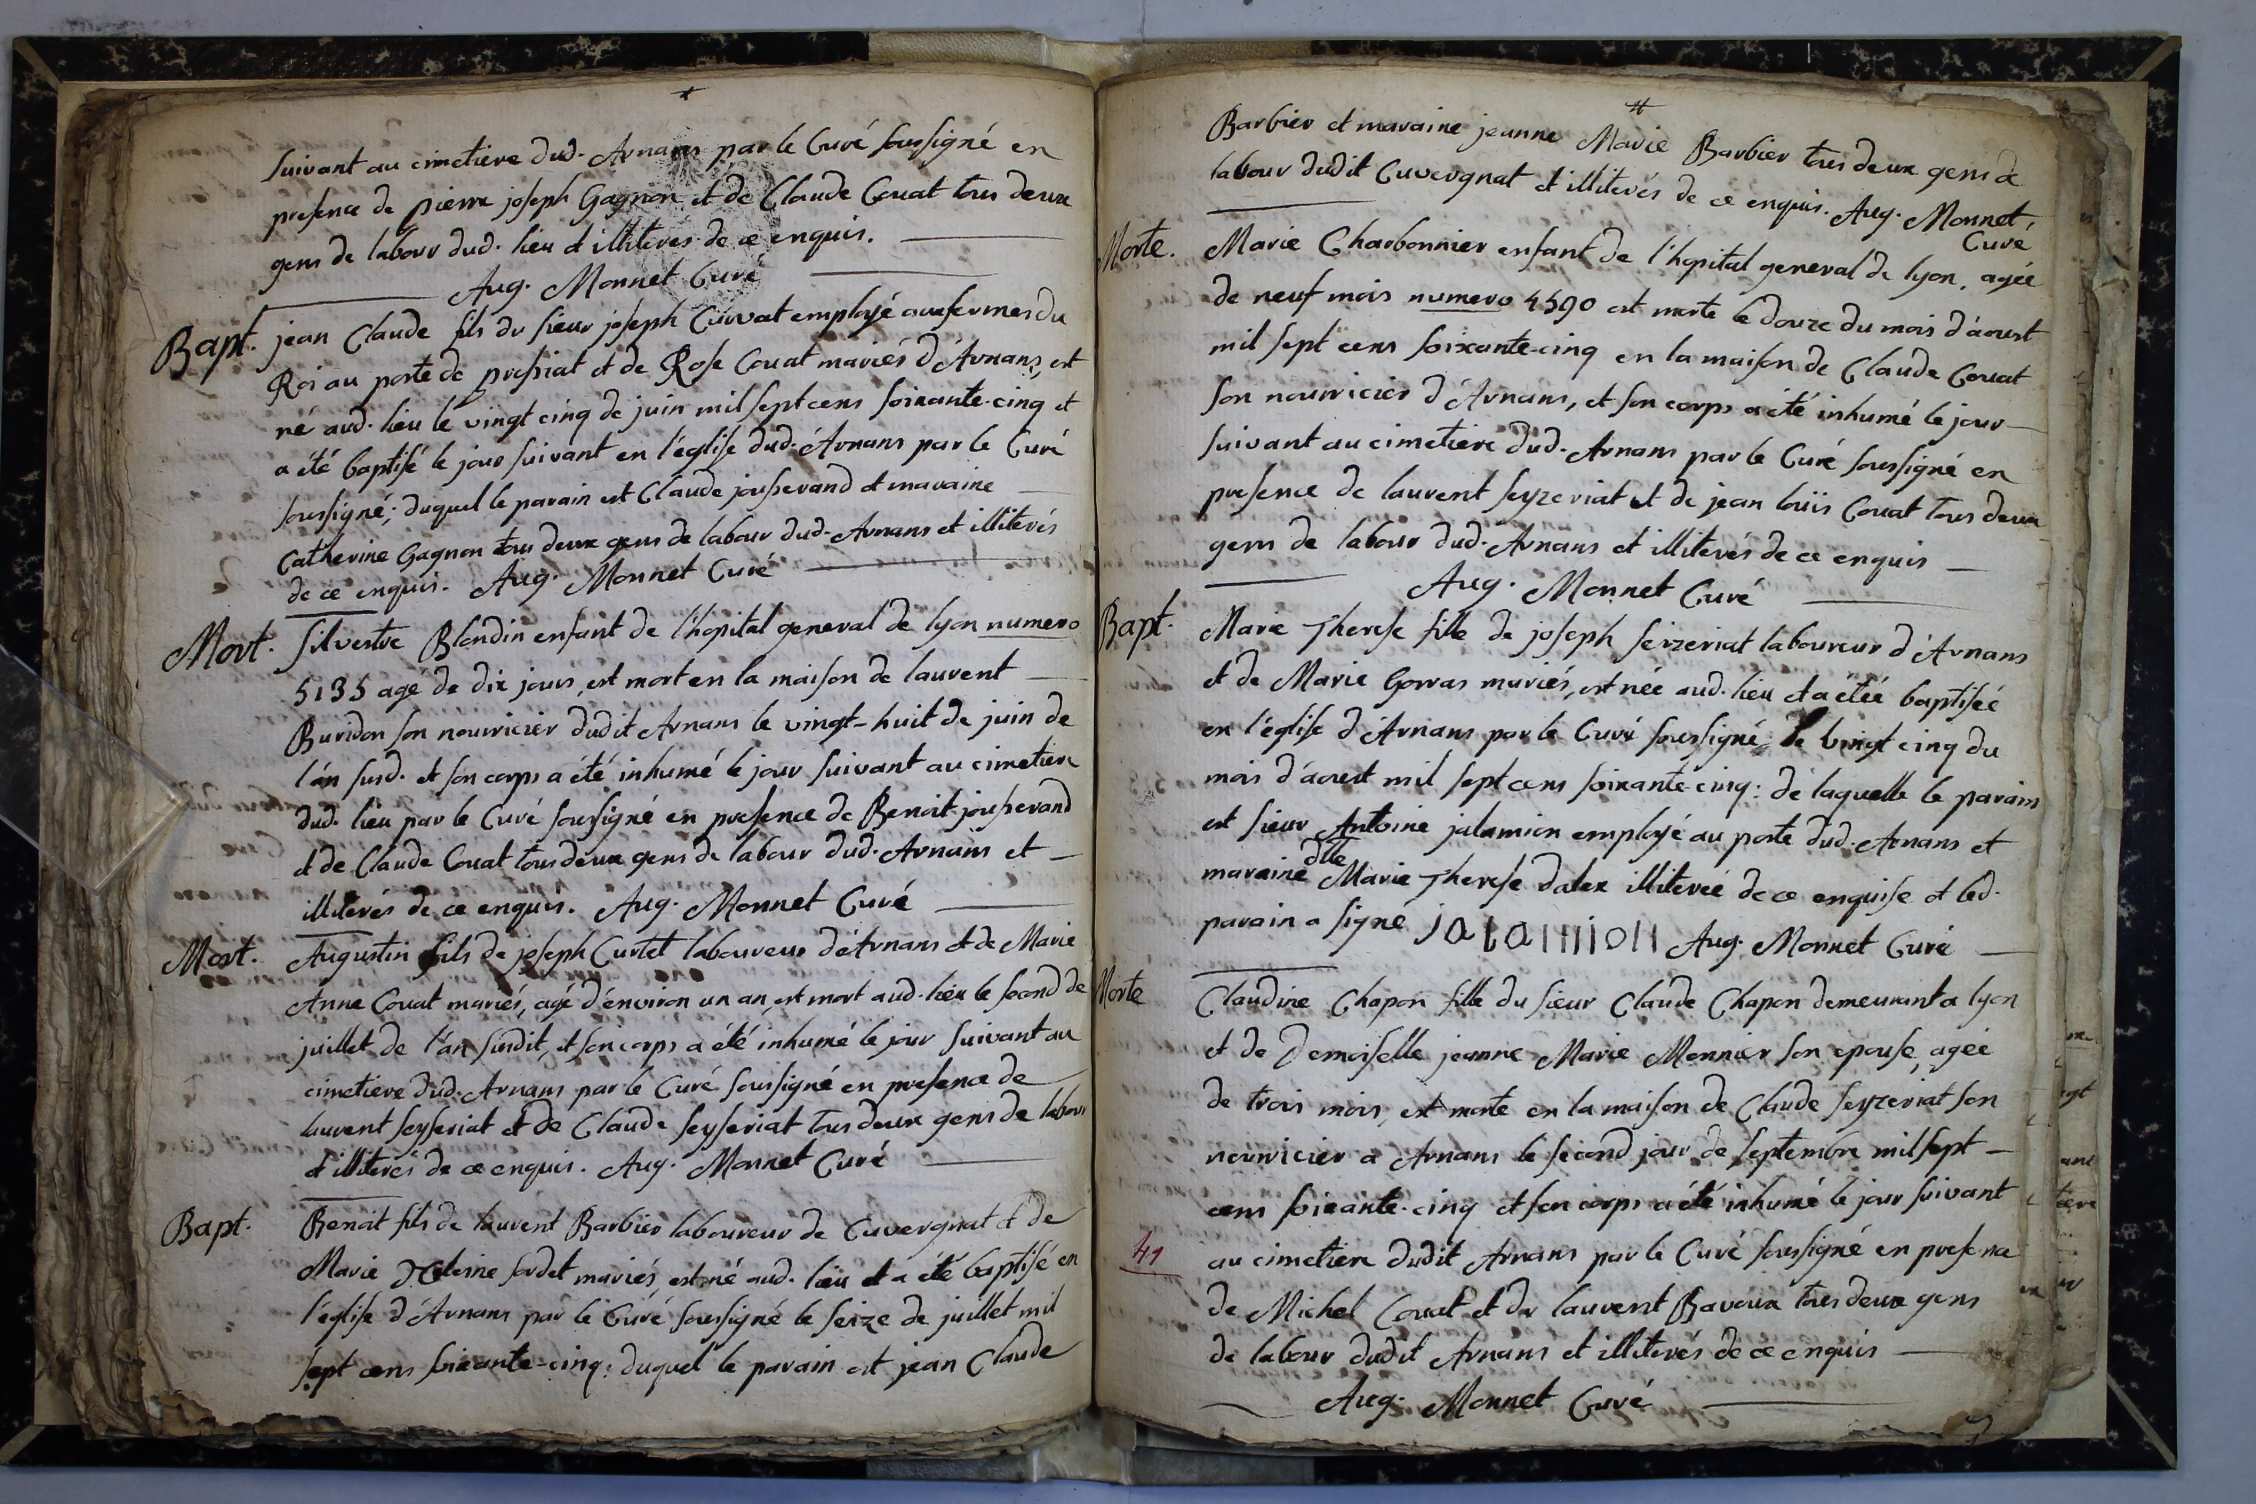 suivant au cimetiere dud. Arnans par le Curé soussigné en
presence de pierre joseph Gagnon et de Claude Couat tous deux
gens de labour dud. lieu et illiterés de ce enquis.
Aug. Monnet Curé
Bapt. jean Claude fils du sieur joseph Curvat employé aux fermes du
Roi au poste de pressiat et de Rose Couat mariés d'Arnans, est
né aud. lieu le vingt cinq de juin mil sept cens soixante-cinq et
a été baptisé le jour suivant en l'église dud. Arnans par le Curé
soussigné; duquel le parain est Claude jousserand et maraine
Catherine Gagnon tous deux gens de labour dud. Arnans et illiterés
de ce enquis. Aug. Monnet Curé
Mort. Silvestre Blondin enfant de l'hopital general de lyon numero
5135 agé de dix jours, est mort en la maison de laurent
Buridon son nourricier dudit Arnans le vingt-huit de juin de
l'an susd. et son corps a été inhumé le jour suivant au cimetiere
dud. lieu par le Curé soussigné en presence de Benoit jousserand
et de Claude Couat tous deux gens de labour dud. Arnans et
illiterés de ce enquis. Aug. Monnet Curé
Mort. Augustin fils de joseph Curtet laboureur d'Arnans et de Marie
Anne Couat mariés, agé d'environ un an, est mort aud. lieu le second de
juillet de l'an susdit, et son corps a été inhumé le jour suivant au
cimetiere dud. Arnans par le Curé soussigné en presence de
laurent seyseriat et de Claude seyseriat tous deux gens de labour
et illiterés de ce enquis. Aug. Monnet Curé
Bapt. Benoit fils de laurent Barbier laboureur de Cuvergnat et de
Marie sordet mariés, est né aud. lieu et a été baptisé en
l'église d'Arnans par le Curé soussigné le seize de juillet mil
sept cens soixante-cinq: duquel le parain est jean Claude
Barbier et maraine jeanne Marie Barbier tous deux gens de
labour dudit Cuvergnat et illiterés de ce enquis. Aug. Monnet
Curé
Morte. Marie Charbonnier enfant de l'hopital general de lyon, agée
de neuf mois numero 4590 est morte le douze du mois d'aoust
mil sept cens soixante-cinq en la maison de Claude Couat
son nourricier d'Arnans, et son corps a été inhumé le jour
suivant au cimetiere dud. Arnans par le Curé soussigné en
presence de laurent seyzeriat et de jean loüis Couat tous deux
gens de labour dud. Arnans et illiterés de ce enquis
Aug. Monnet Curé
Bapt. Marie Therese fille de joseph seizeriat laboureur d'Arnans
et de Marie Gorras mariés, est née aud. lieu et a étée baptisée
en l'église d'Arnans par le Curé soussigné, le vingt cinq du
mois d'aoust mil sept cens soixante-cinq: de laquelle le parain
est sieur Antoine jalamion employé au poste dud. Arnans et
maraine dlle Marie Therese dalex illiterée de ce enquise et led.
parain a signé jalamion Aug. Monnet Curé
Morte Claudine Chapon fille du sieur Claude Chapon demeurant a lyon
et de Demoiselle jeanne Marie Monnier son epouse, agée
de trois mois, est morte en la maison de Claude seyzeriat son
nourricier a Arnans le second jour de septembre mil sept
cens soixante-cinq et son corps a été inhumé le jour suivant
41 au cimetiere dudit Arnans par le Curé soussigné en presence
de Michel Couat et de laurent Bavoux tous deux gens
de labour dudit Arnans et illiterés de ce enquis
Aug. Monnet Curé